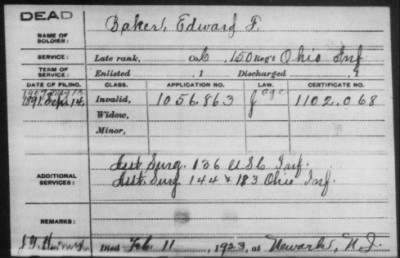 DEAD
NAME OF SOLDIER: Baker, Edward F.
SERVICE: Late rank, Co. C, 150 Reg't Ohio Inf
TERM OF SERVICE: Enlisted , 1 Discharged , 1
DATE OF FILING. CLASS. APPLICATION NO. LAW. CERTIFICATE NO.
1891 Sept 14 Invalid, 1056.863 J 1102.068
Widow,
Minor,
ADDITIONAL SERVICES: Asst. Surg. 136 U.S.C. Inf.
Asst. Surg 144 & 183 Ohio Inf.
REMARKS:
Died Feb. 11, 1923, at Newark, N.J.